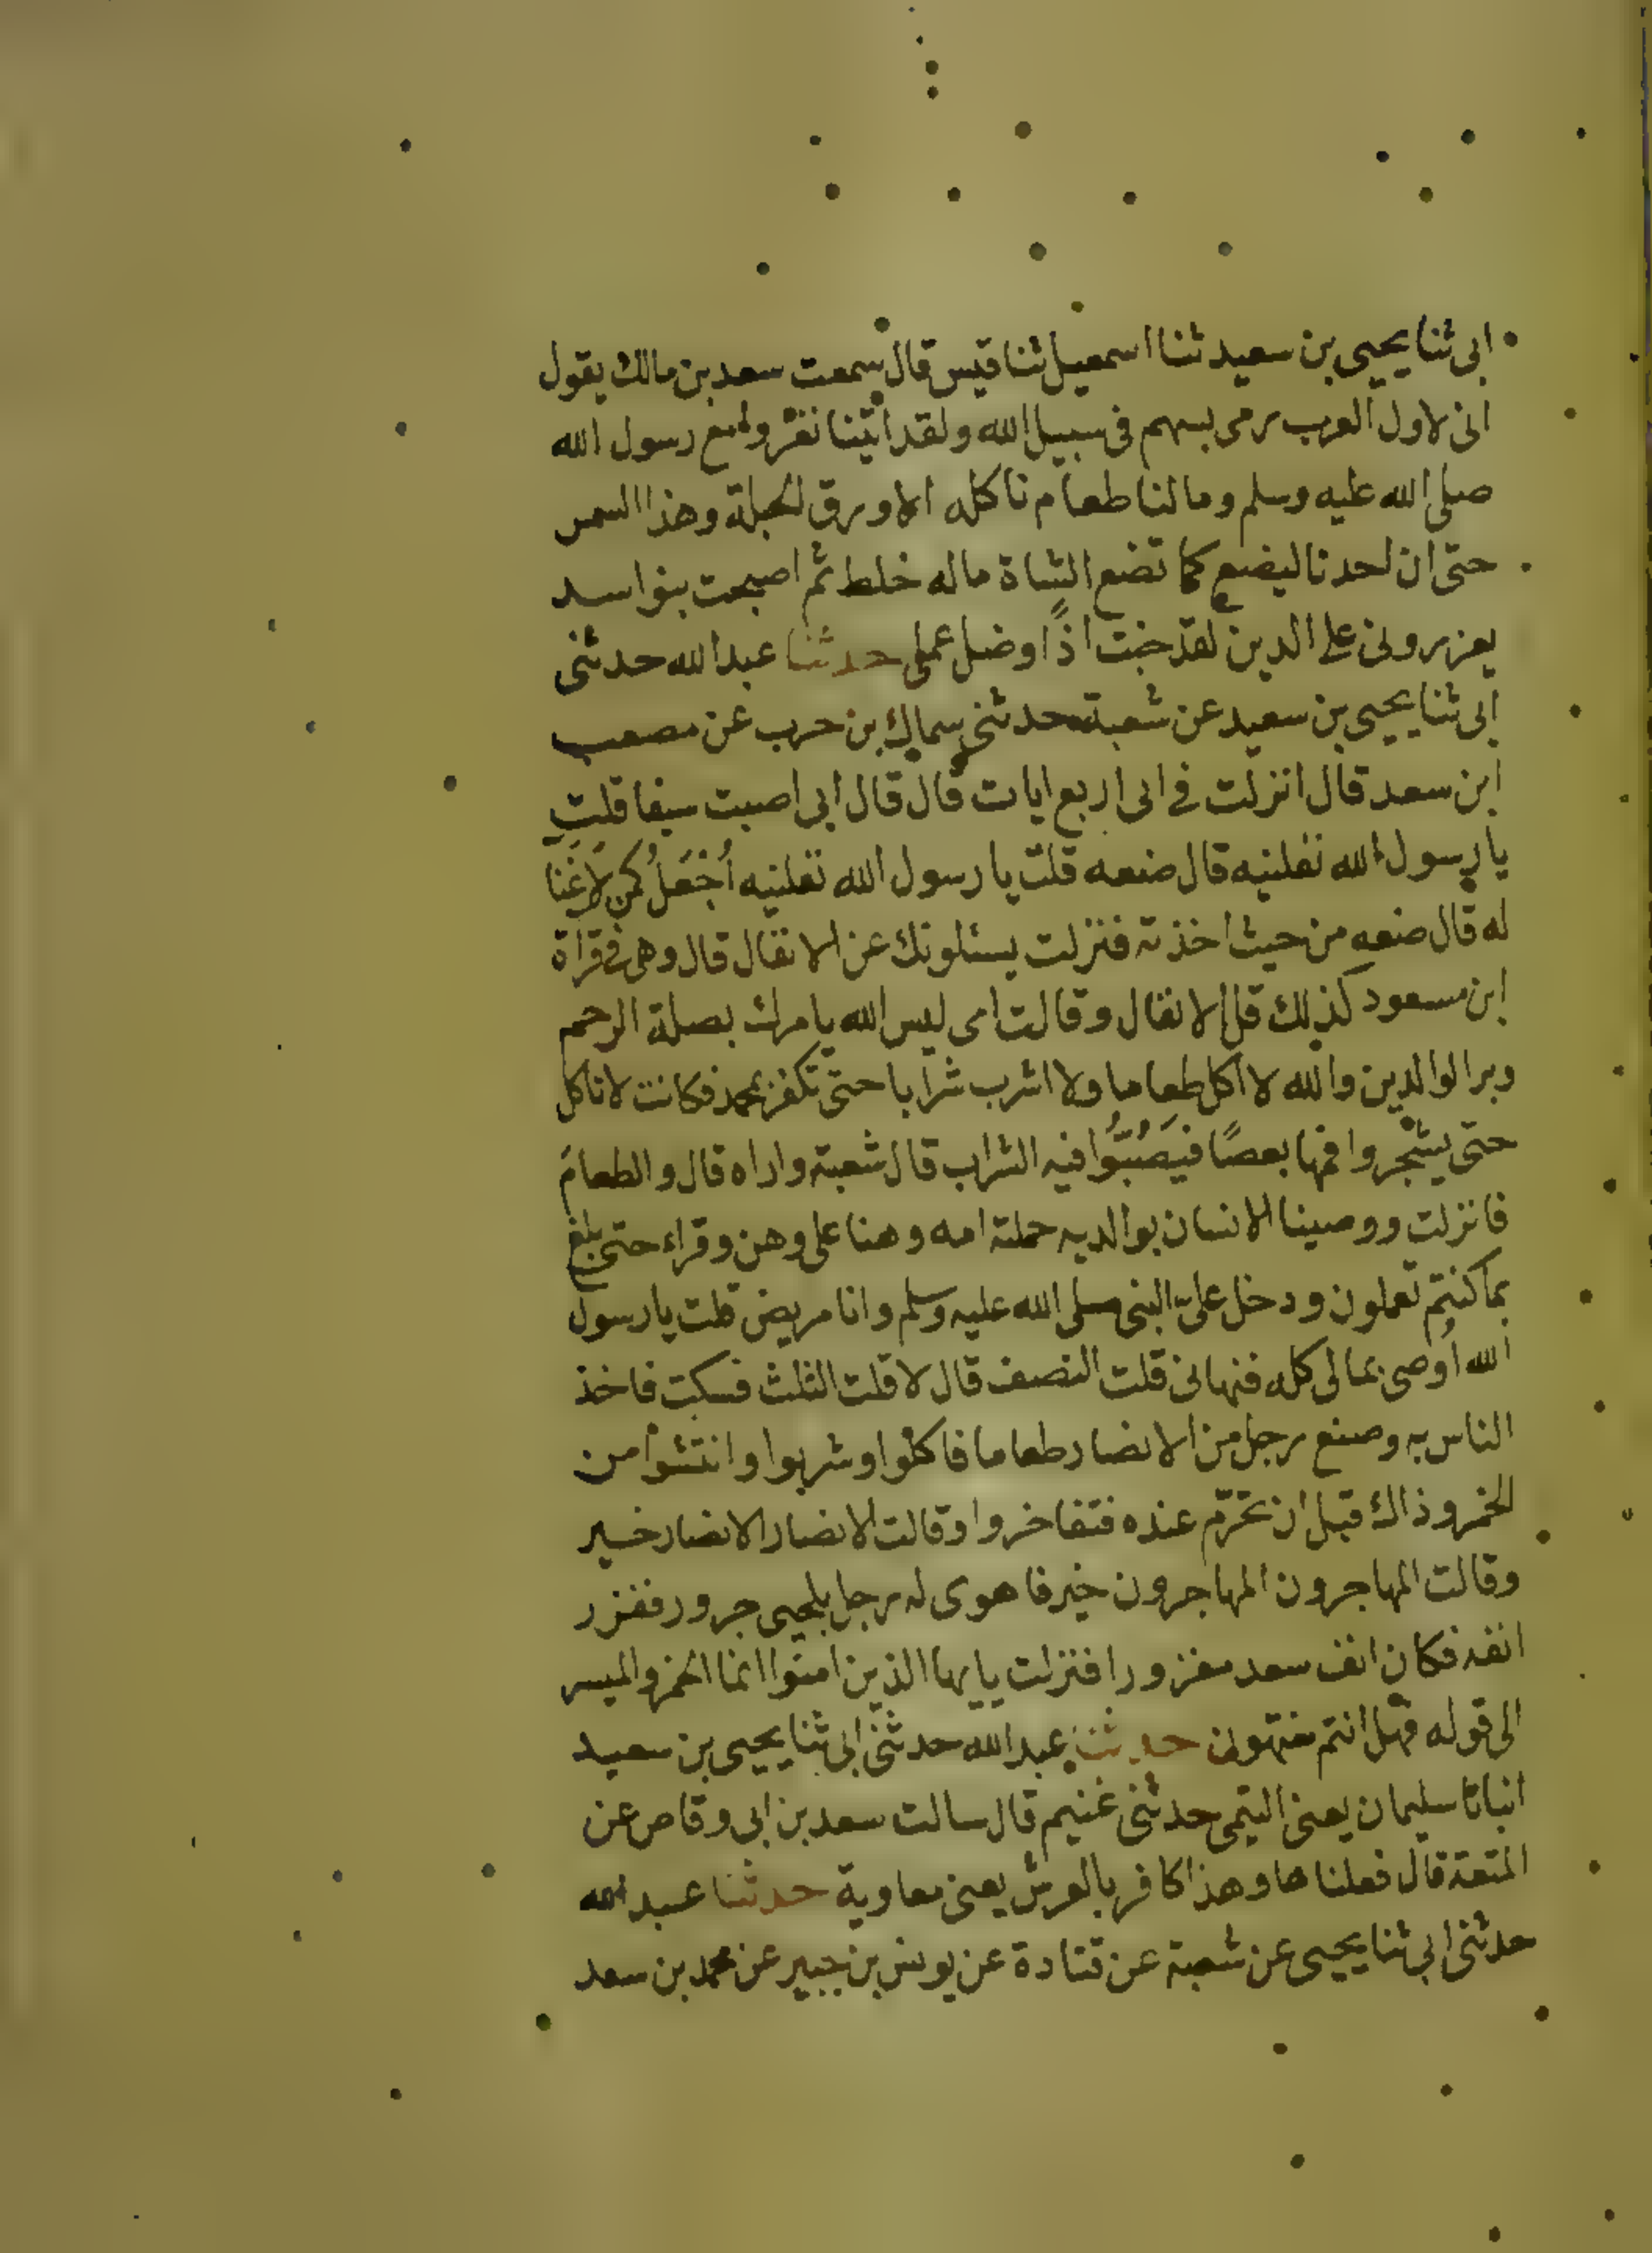 ابى ثنا يحيى بن سعيد ثنا اسمعيل ثنا قيس قال سمعت سعد بن مالك يقول
انى لاول العرب رمى بسهم فى سبيل الله ولقد اتينا نغزو مع رسول الله
صلى الله عليه وسلم وما لنا طعام ناكله الا ورق الحبلة وهذا السمر
حتى ان احدنا ليضع كما تضع الشاة ماله خلط ثم اصبحت بنو اسد
يعزرونى على الدين لقد خبت اذًا وضل عملى حدثنا عبد الله حدثنى
ابى ثنا يحيى بن سعيد عن شعبة حدثنى سماك بن حرب عن مصعب
ابن سعد قال انزلت فى ابى اربع ايات قال قال ابى اصبت سيفا قلت
يا رسول الله نفلنيه قال ضعه قلت يا رسول الله نفلنيه أُجْعَلُ كمن لا غَنا
له قال ضعه من حيث اخذته فنزلت يسئلونك عن الانفال قال وهى فى قراة
ابن مسعود كذلك قل الانفال وقالت امى ليس الله يامرك بصلة الرحم
وبر الوالدين والله لا اكل طعاما ولا اشرب شرابا حتى تكفر بمحمد فكانت لا تاكل
حتى يشْجروا فمها بعصًا فيَصُبُّوا فيه الشراب قال شعبة واراه قال والطعامَ
فانزلت ووصينا الانسان بوالديه حملته امه وهنا على وهن وقراء حتى بلغ
بما كنتم تعملون ودخل علىّ النبى صلى الله عليه وسلم وانا مريض قلت يا رسول
الله أوصى بمالى كله فنهانى قلت النصف قال لا قلت الثلث فسكت فاخذ
الناس به وصنع رجل من الانصار طعاما فاكلوا وشربوا وانتشوا من
الخمر وذاك قبل ان تحرّم عنده فتفاخروا وقالت الانصار الانصار خير
وقالت المهاجرون المهاجرون خير فاهوى له رجل بلحيى جزور ففزر
انفه فكان انف سعد مفزورا فنزلت يايها الذين امنوا انما الخمر والميسر
الى قوله فهل انتم منتهون حدثنا عبد الله حدثنى ابى ثنا يحيى بن سعيد
انبانا سليمان يعنى التيمى حدثنى غنيم قال سالت سعد بن ابى وقاص عن
المتعة قال فعلناها وهذا كافر بالعرش يعنى معاوية حدثنا عبد الله
حدثنى ابى ثنا يحيى عن شعبة عن قتادة عن يونس بن جبير عن محمد بن سعد